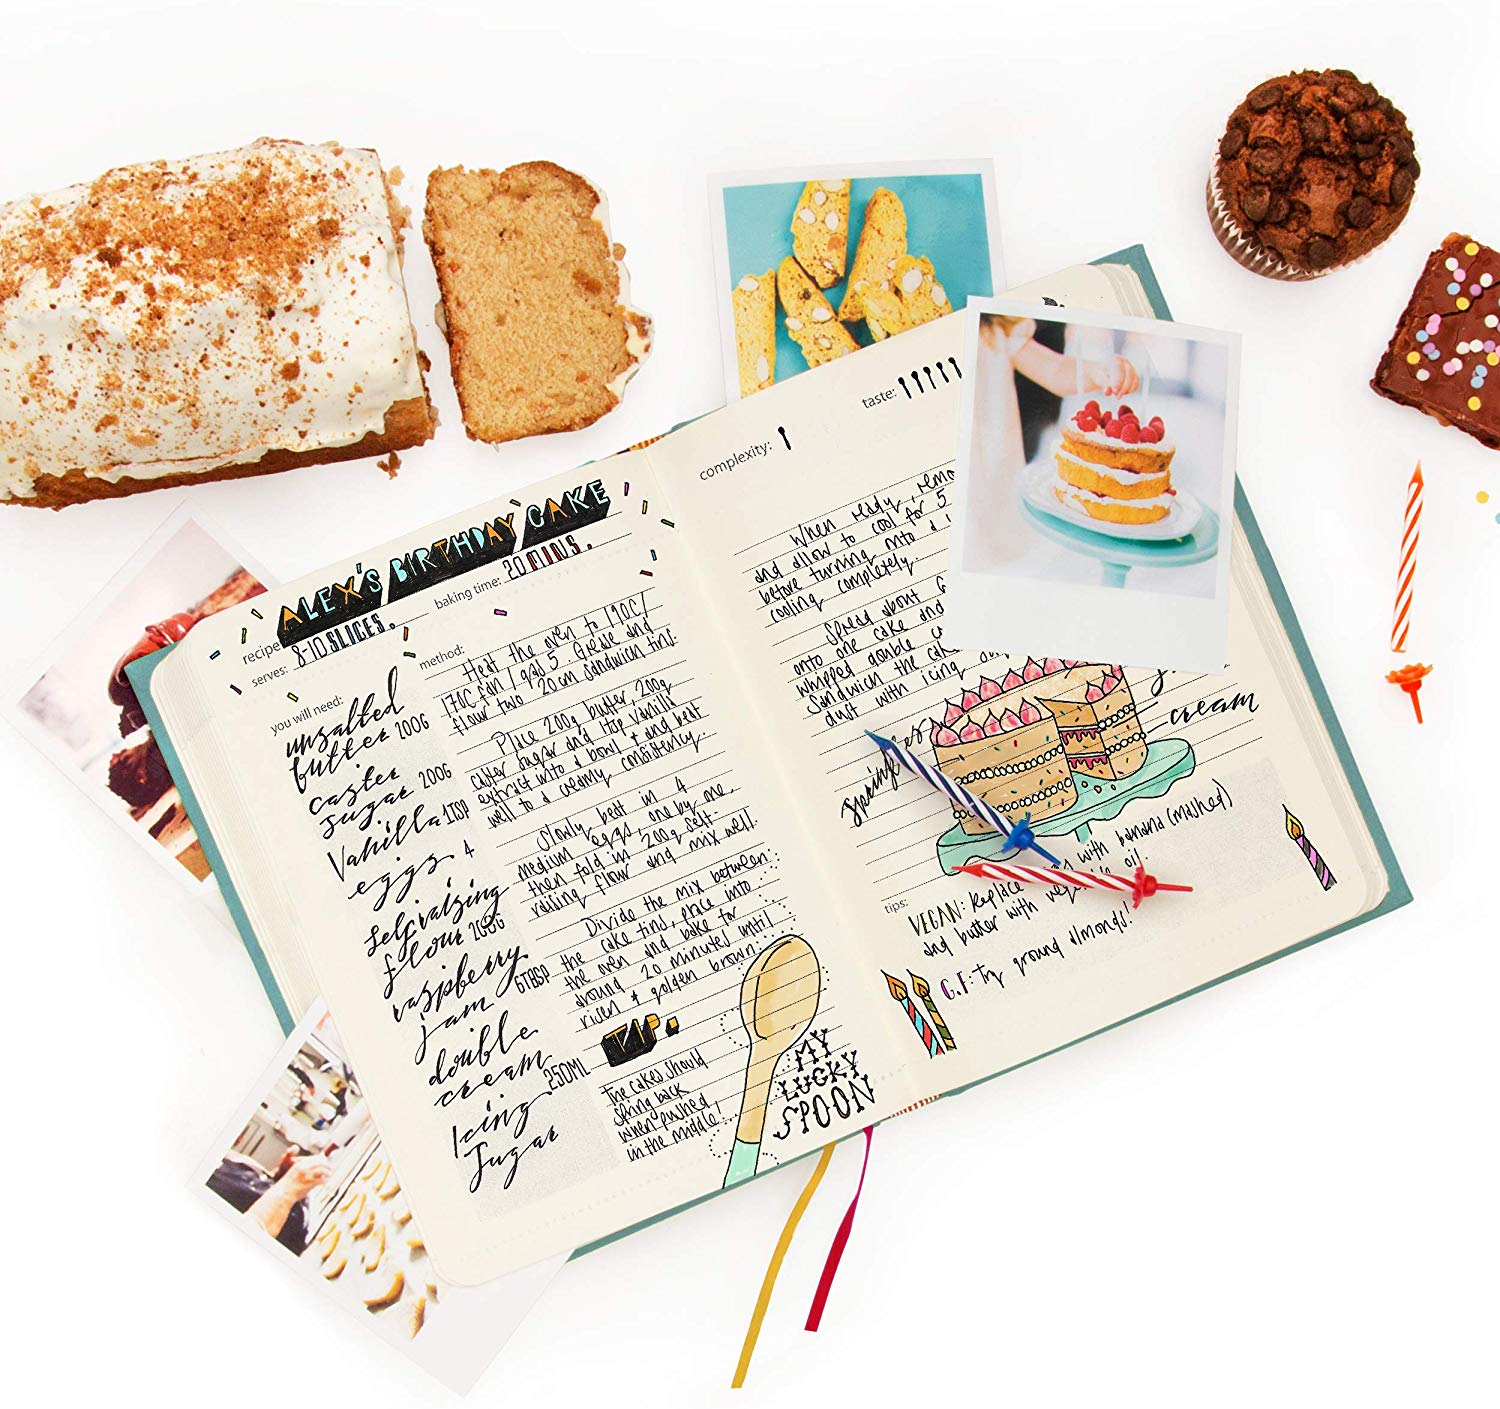 recipe: ALEX'S BIRTHDAY CAKE
serves: 8-10 SLICES.
baking time: 20 MINS.
you will need:
unsalted
butter 200G
caster
sugar 200G
Vanilla 1TSP
eggs 4
self raising
flour 200G
raspberry
jam 6TBSP
double
cream 250ML
Icing
Sugar
method:
Heat the oven to 190C/
170C fan/gas 5. Grease and
flour two 20cm sandwich tins.
Place 200g butter, 200g
caster sugar and 1tsp vanilla
extract into a bowl & and beat
well to a creamy consistency.
Slowly beat in 4
medium eggs, one by one,
then fold in 200g self-
raising flour and mix well.
Divide the mix between
the cake tins, place into
the oven and bake for
around 20 minutes until
risen & golden brown.
TIP:
The cakes should
spring back
when pushed
in the middle!
MY
LUCKY
SPOON
complexity:
taste:
When ready, remo
and allow to cool for 5
before turning onto a
cooling completely.
Spread about
onto one cake and
whipped double
Sandwich the cake
dust with icing
sprinkles
cream
tips:
VEGAN: Replace with banana (mashed)
and butter with oil.
G.F: Try ground almonds!